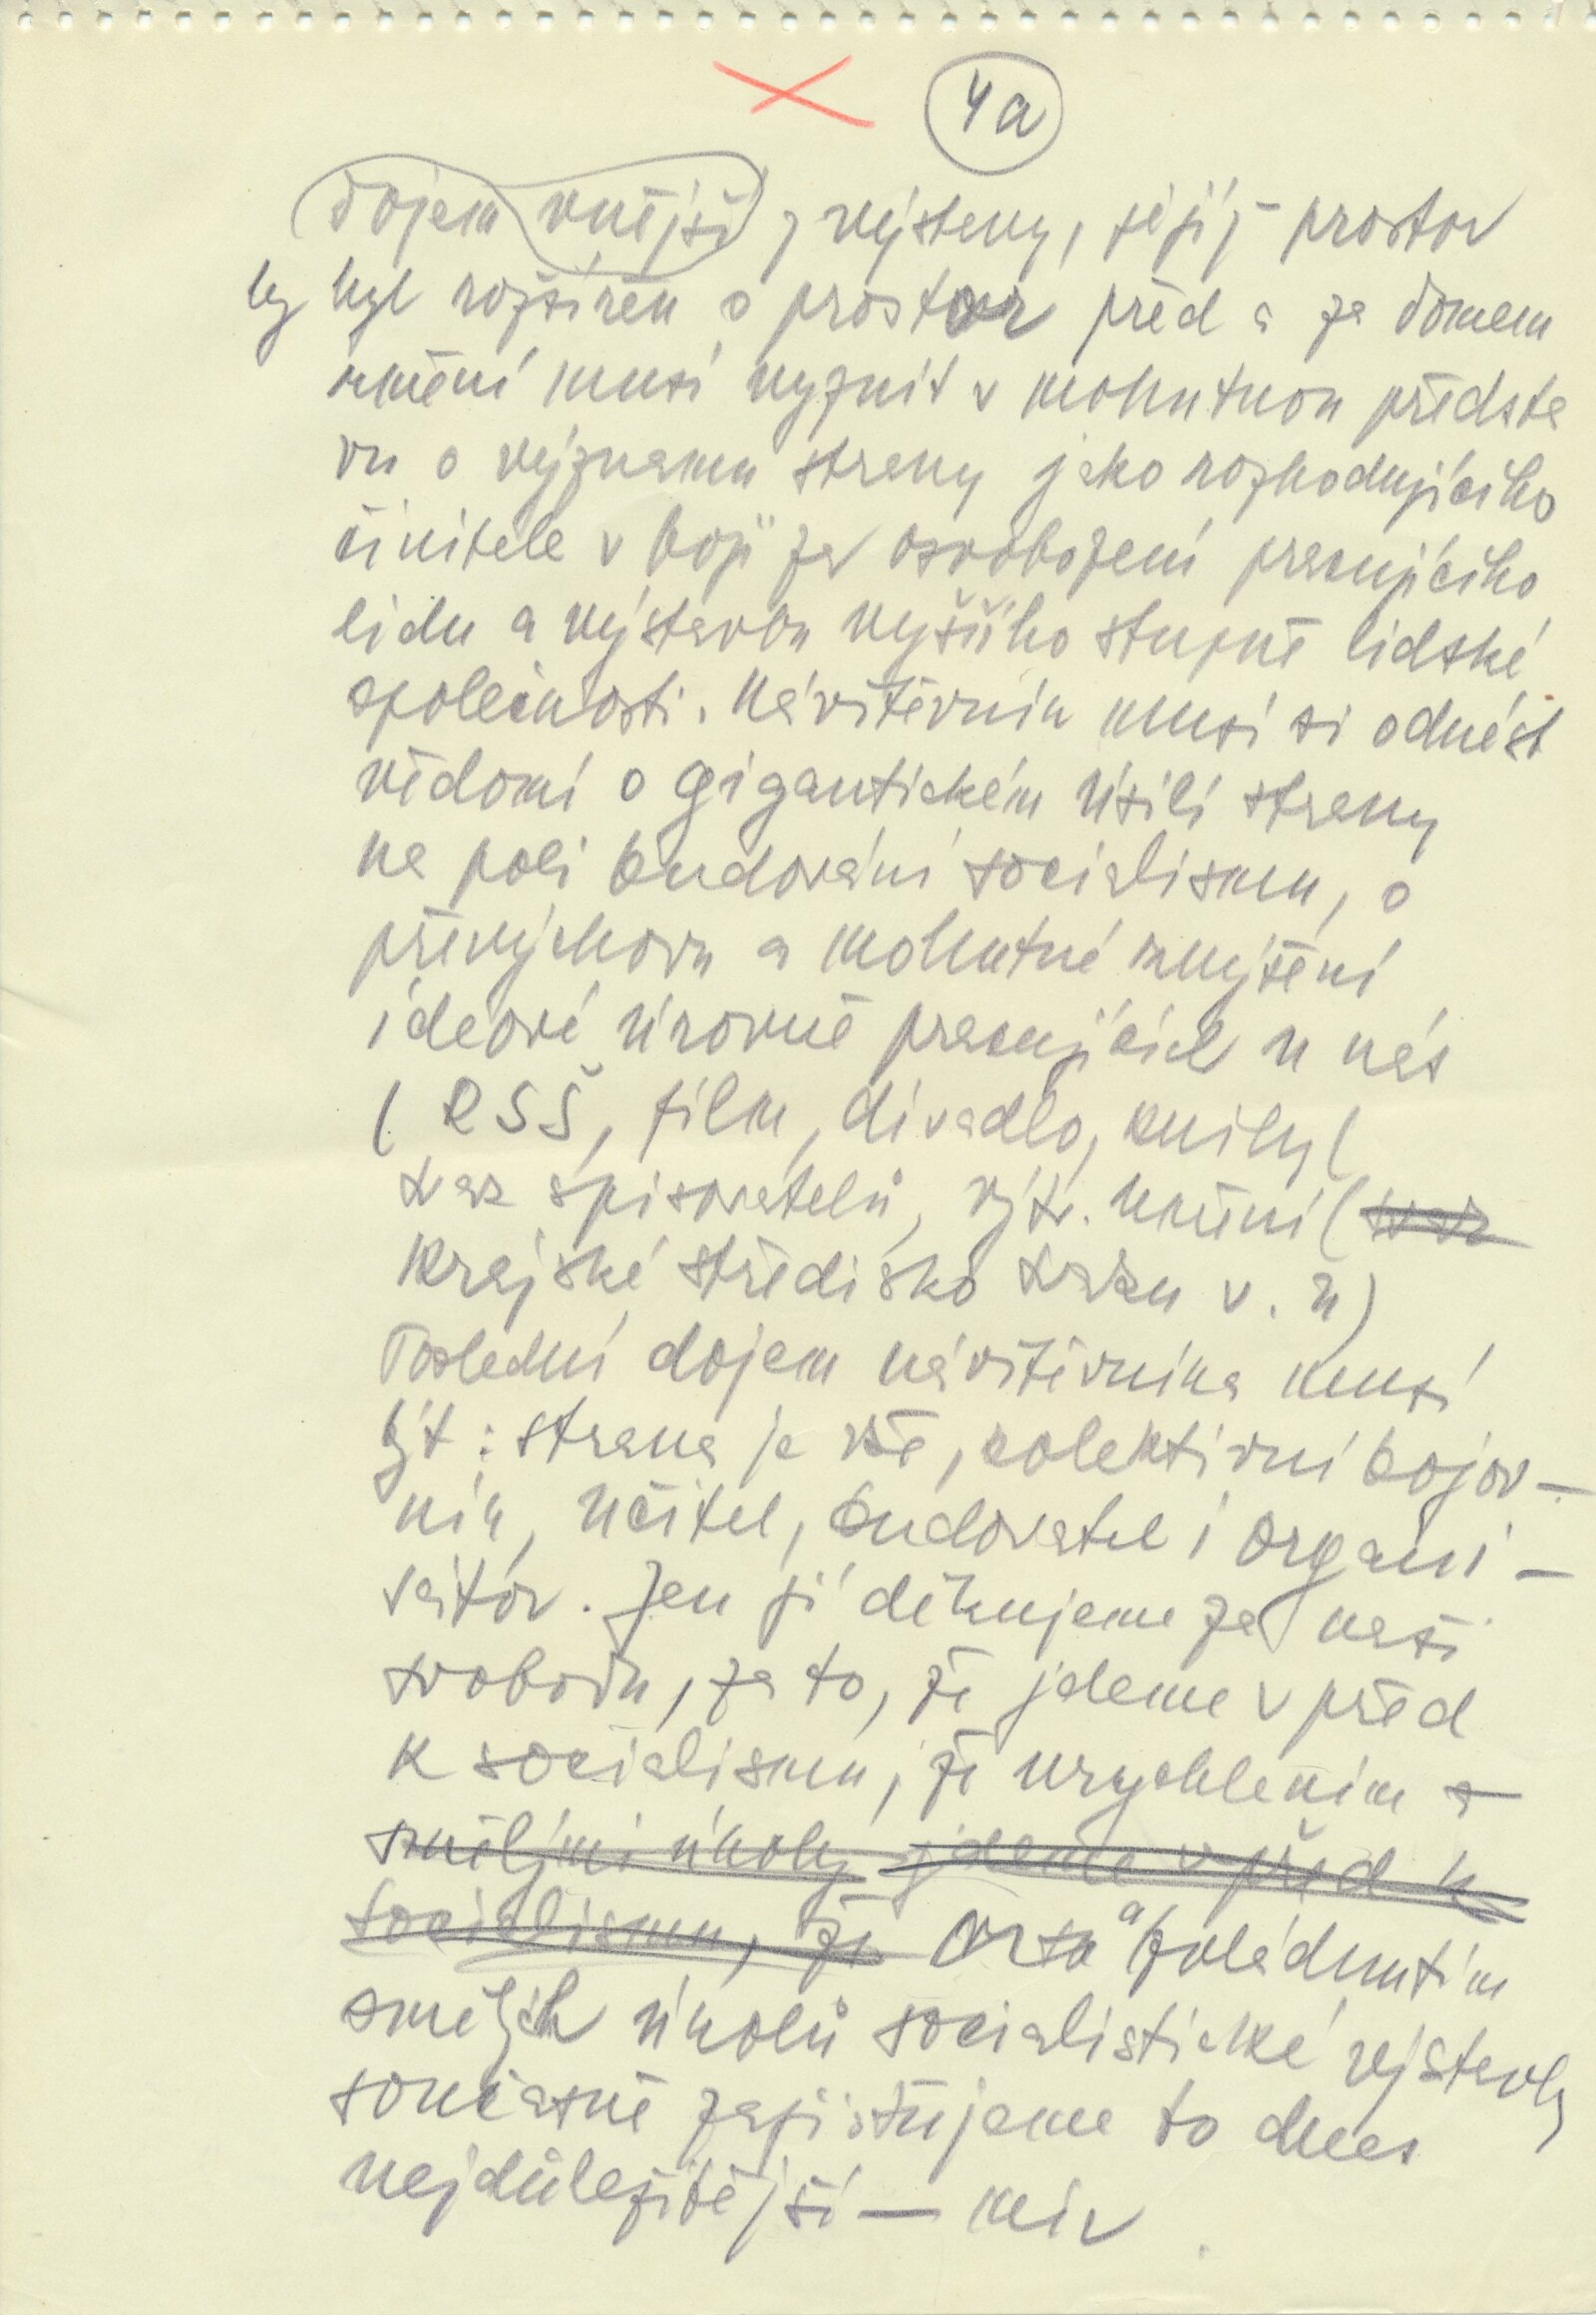 4a
dojem vnější z výstavy, jejíž prostor
by byl rozšířen o prostor před a za domem
umění musí vyznít v mohutnou předsta
vu o významu strany jako rozhodujícího
činitele v boji za osvobození pracujícího
lidu a výstavbu vyššího stupně lidské
společnosti. Návštěvník musí si odnést
vědomí o gigantickém úsilí strany
na poli budování socialismu, o
převýchovu a mohutné zvýšení
ideové úrovně pracujících u nás
( RSŠ, film, divadlo, knihy (
svaz spisovatelů, výtv. umění (
krajské středisko svazu v. u)
Poslední dojem návštěvníka musí
být : strana je vše, kolektivní bojov-
ník, učitel, budovatel i organi-
sátor. Jen jí děkujeme za naši
svobodu, za to, že jdeme v před
k socialismu, že urychlením a
smělými úkoly jdeme v před k
socialismu, že a zvládnutím
smělých úkolů socialistické výstavby
současně zajišťujeme to dnes
nejdůležitější — mír